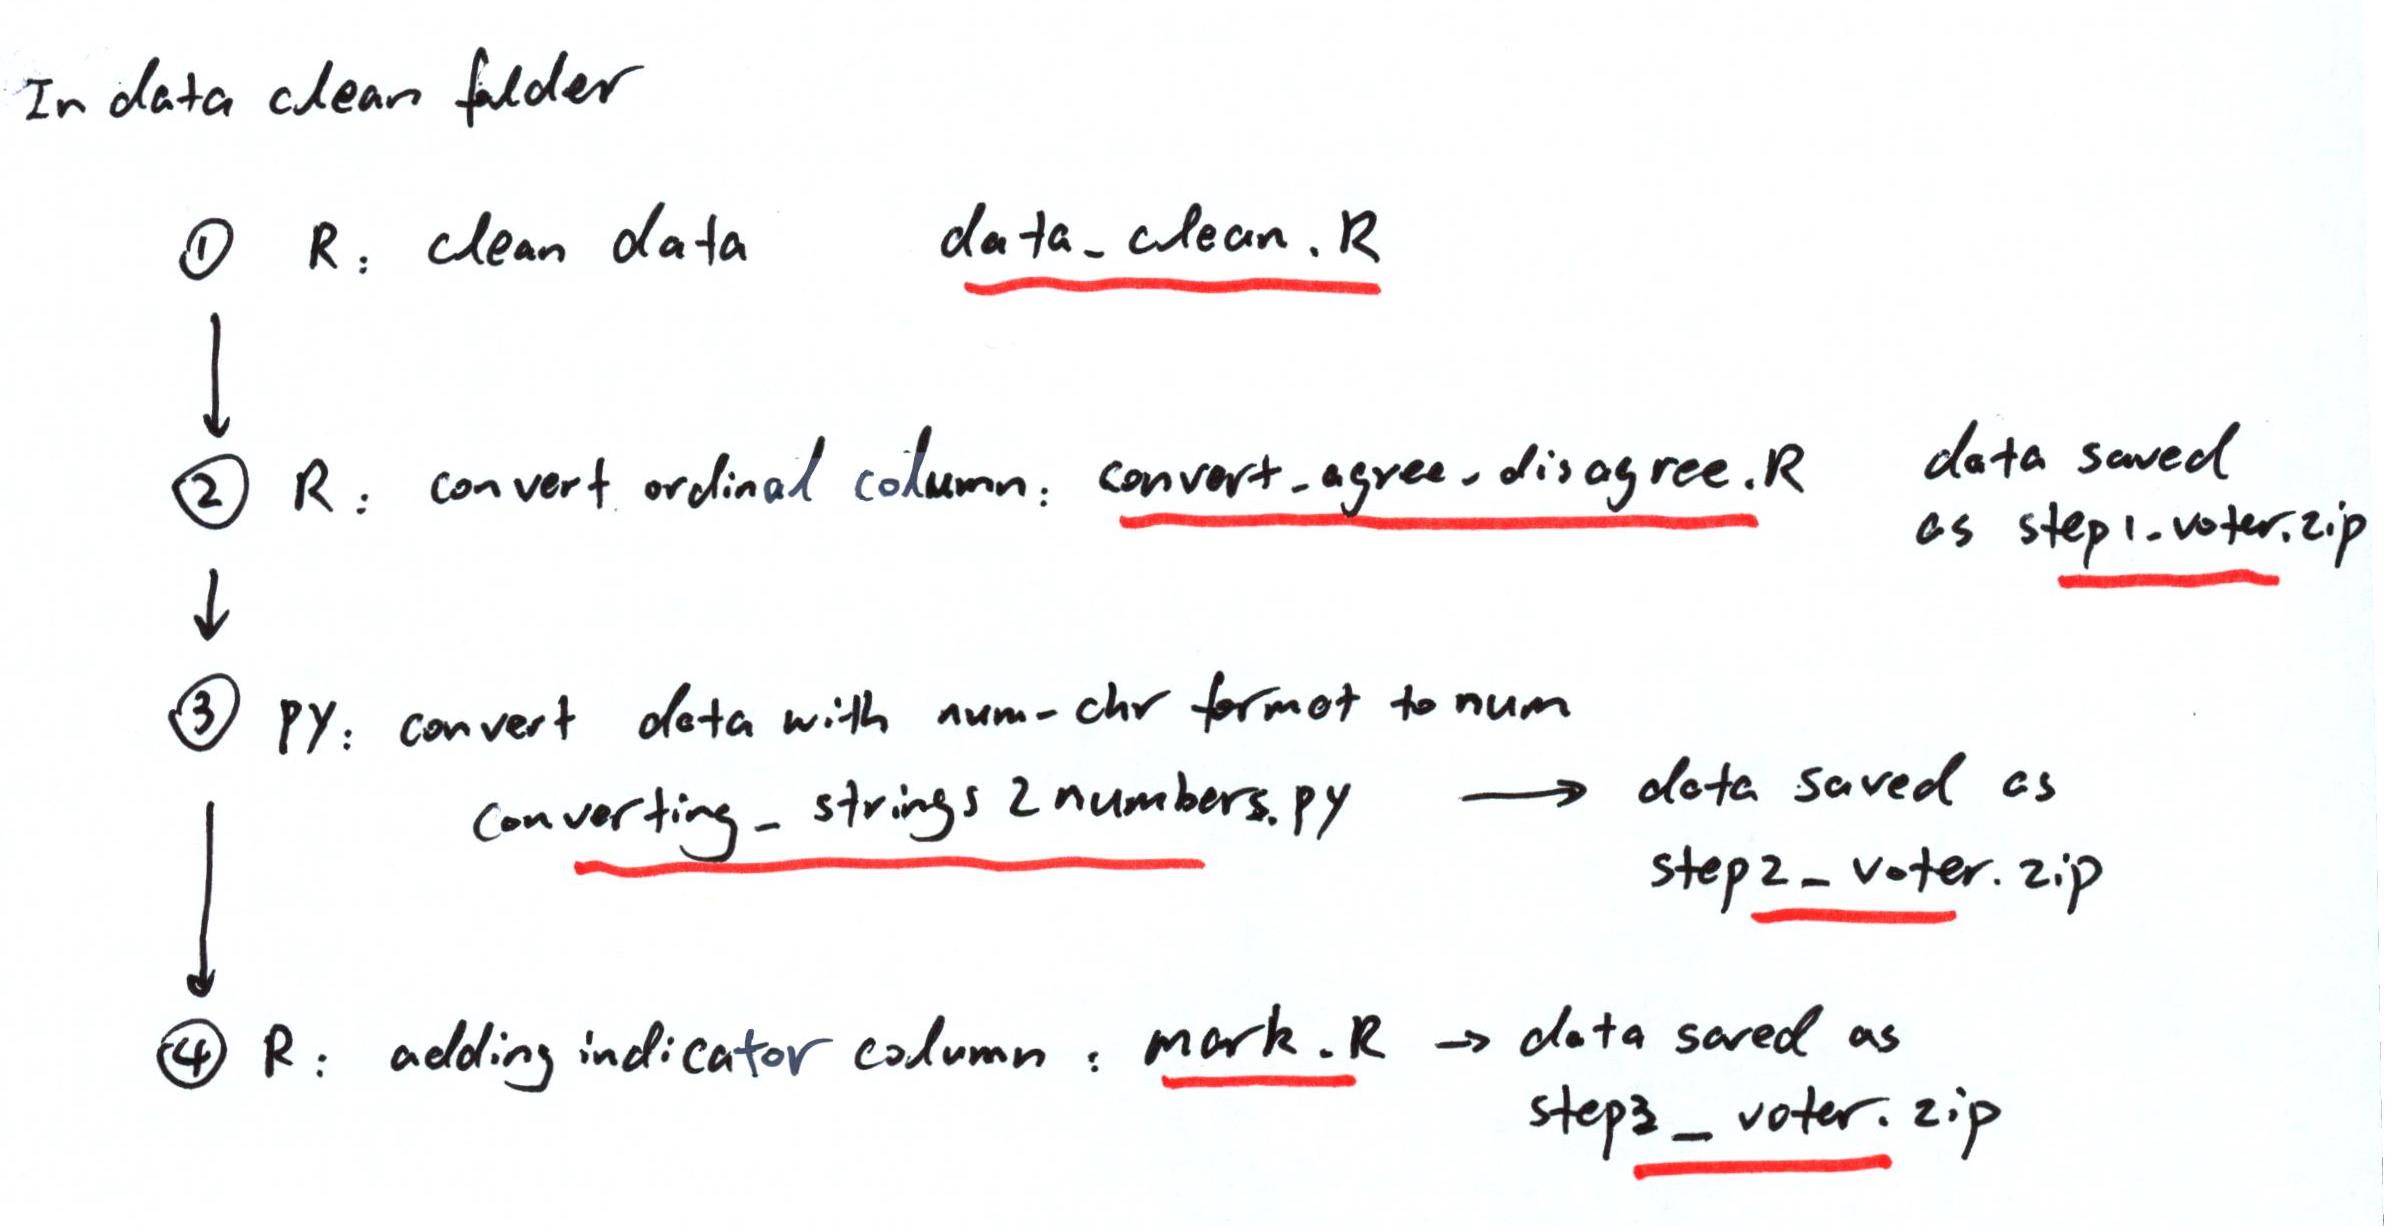 In data clean folder
① R: clean data data_clean.R
② R: convert ordinal column: convert_agree_disagree.R data saved
as step1_voter.zip
③ PY: convert data with num-chr format to num
converting_strings2numbers.py → data saved as
step2_voter.zip
④ R: adding indicator column: mark.R → data saved as
step3_voter.zip